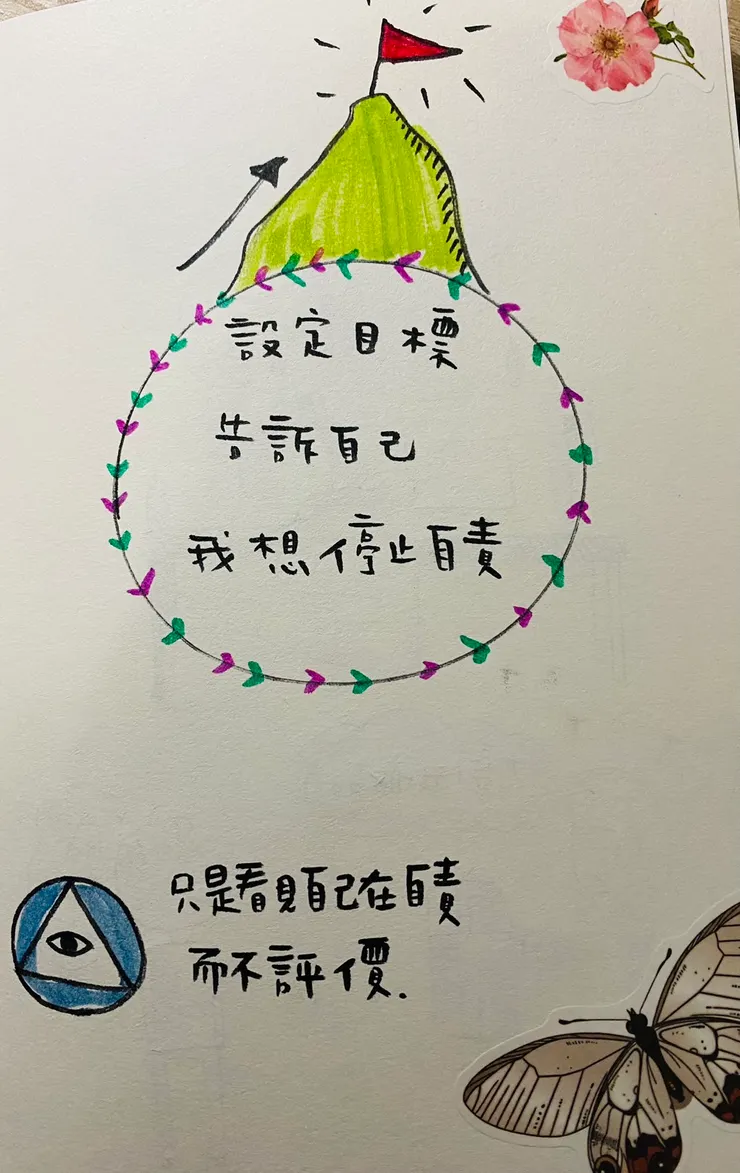 設定目標
告訴自己
我想停止自責
只是看見自己在自責
而不評價.